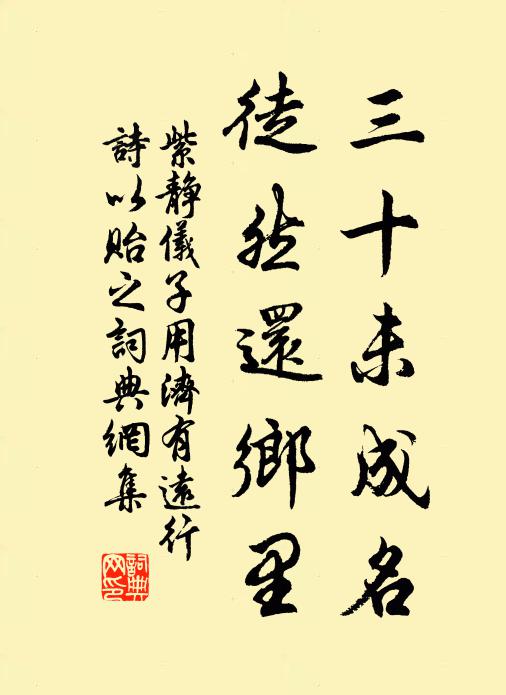 三十未成名
徒然還鄉里
紫靜儀子用濟有遠行
詩以貽之詞典網集
詞典
网印